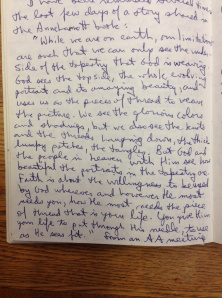 I have been remembered several times
the last few days of a story shared in
the Annemarie book:
"While we are on earth, our limitations
are over that we can only see the under
side of the tapestry that God is weaving.
God sees the topside, the whole evolving
portrait and its amazing beauty, and
uses us as the pieces of thread to weave
the picture. We see the glorious colors
and shadings, but we also see the knots
and the threads hanging down, the thick
lumpy patches, the tangles. But God and
the people in heaven with Him see how
beautiful the portraits in the tapestry are.
Faith is about the willingness to be used
by God wherever and however He most
needs you, how He most needs the piece
of thread that is your life. You give Him
your life to put through His needle, to use
as He sees fit." from an AA meeting